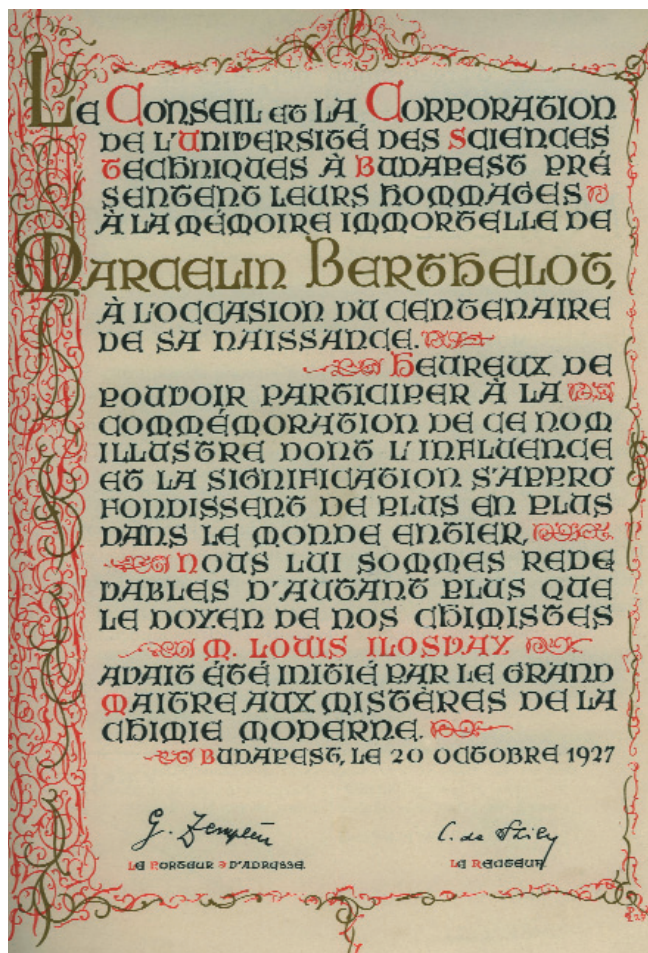 Le Conseil et la Corporation
de l'Université des Sciences
Techniques à Budapest pré
sentent leurs hommages
à la mémoire immortelle de
Marcelin Berthelot,
à l'occasion du centenaire
de sa naissance.
Heureux de
pouvoir participer à la
commémoration de ce nom
illustre dont l'influence
et la signification s'appro
fondissent de plus en plus
dans le monde entier,
nous lui sommes rede
vables d'autant plus que
le doyen de nos chimistes
M. Louis Ilosvay
avait été initié par le grand
maitre aux mistères de la
chimie moderne.
Budapest, le 20 octobre 1927
G. Zemplén C. de Szily
Le Porteur d'adresse. Le Recteur.